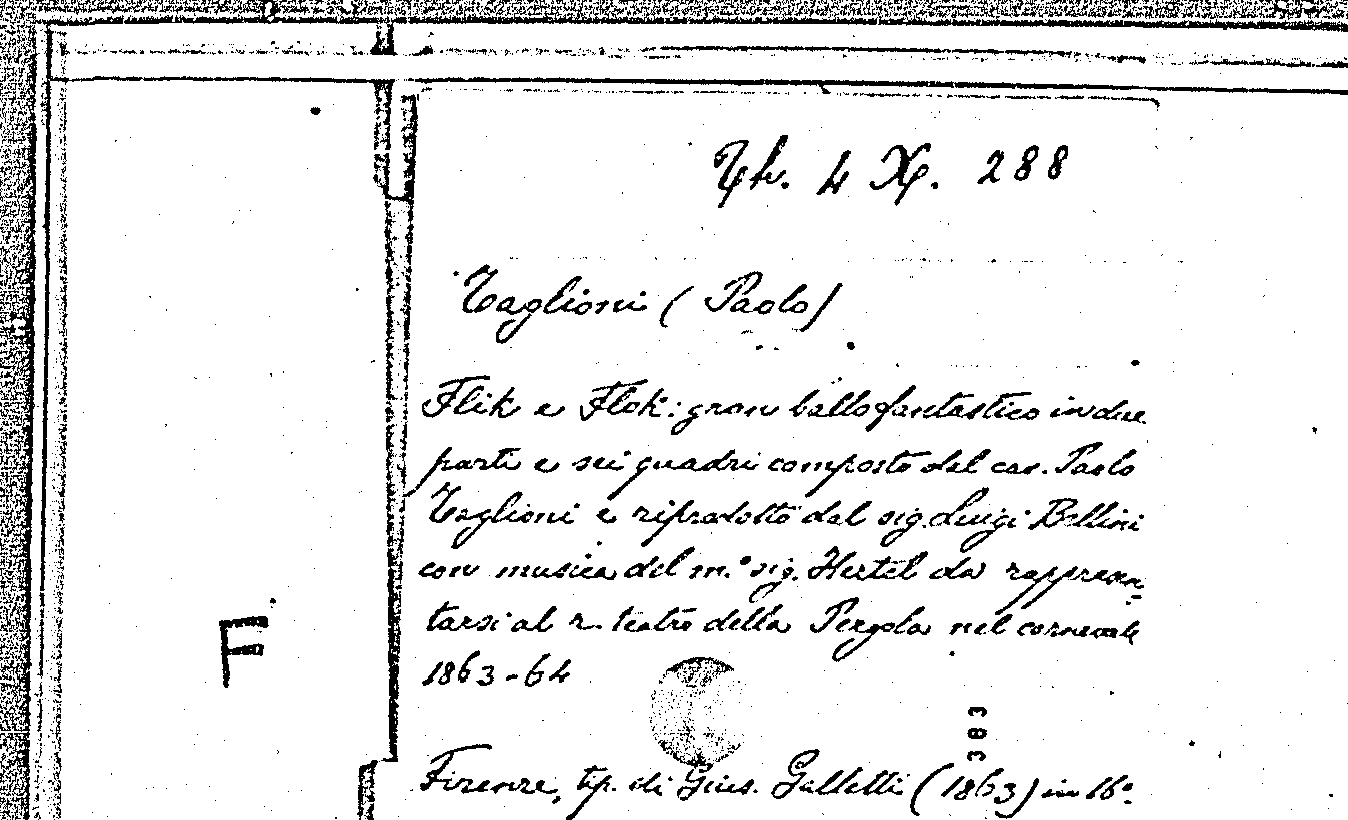 Th. 4 X. 288
Taglioni (Paolo)
Flik e Flok: gran ballo fantastico in due
parti e sei quadri composto dal cav. Paolo
Taglioni e riprodotto dal sig. Luigi Bellini
con musica del m.° sig. Hertel da rappresen-
tarsi al r. teatro della Pergola nel carnevale
1863-64
F
383
Firenze, tip. di Gius. Galletti (1863) in 16°.